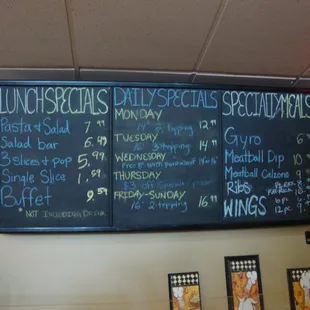 LUNCH SPECIALS
Pasta & Salad 7.99
Salad bar 6.49
3 slices & pop 5.99
Single Slice 1.89
Buffet 9.59
*NOT INCLUDING DRINK
DAILY SPECIALS
MONDAY
2-topping 12.99
TUESDAY
16" 3-topping 14.99
WEDNESDAY
THURSDAY
$3 off Specialty
FRIDAY-SUNDAY
16" 2-topping 16.99
SPECIALTY MEALS
Gyro 6
Meatball Dip 10
Meatball Calzone 9
Ribs
WINGS
6pc
12pc